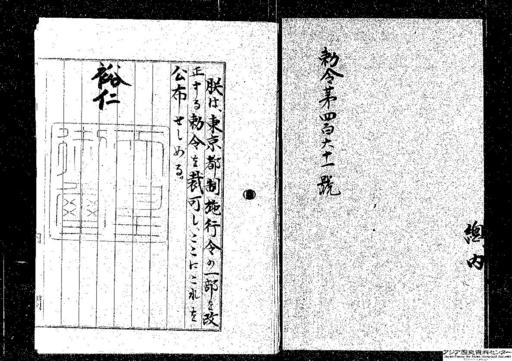 勅令第四百六十一號
總 内
朕は、東京都制施行令の一部を改
正する勅令を裁可し、ここにこれを
公布せしめる。
裕仁
アジア歴史資料センター